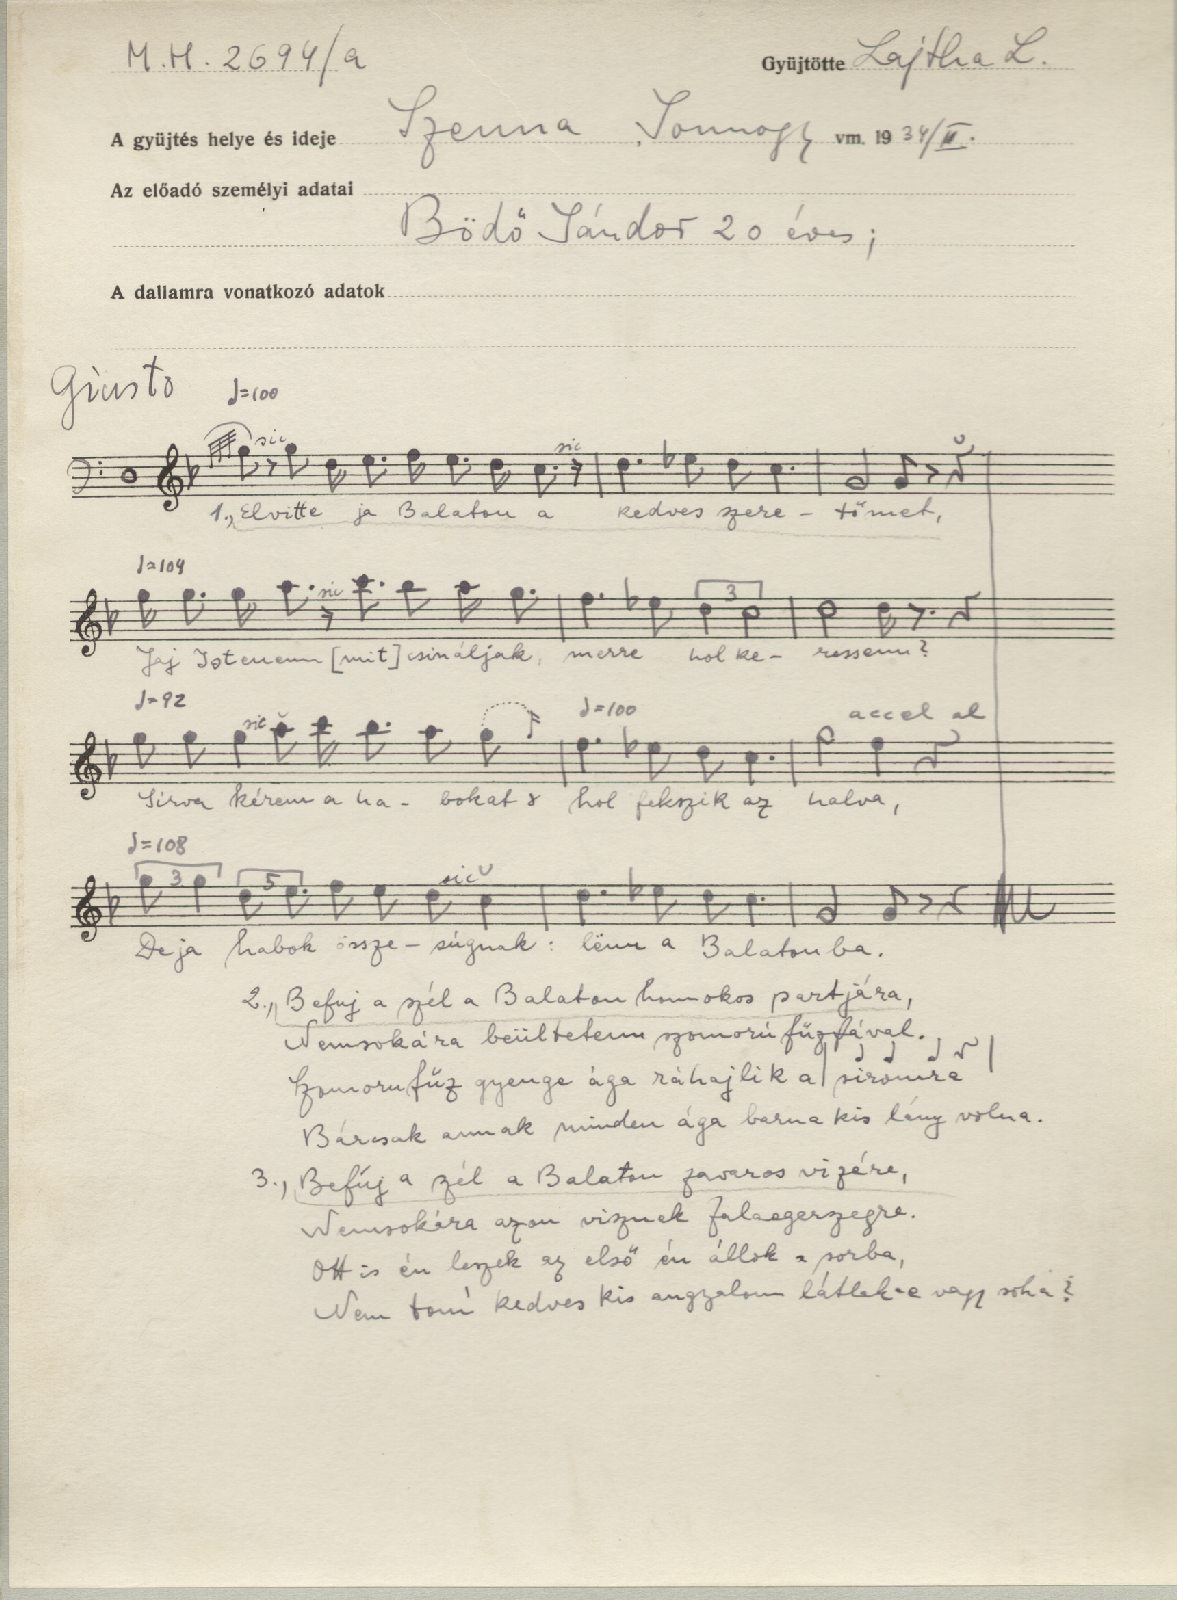 M.H. 2694/a
Gyüjtötte Lajtha L.
A gyüjtés helye és ideje Szenna, Somogy vm. 19 34/II.
Az előadó személyi adatai
Bödő Sándor 20 éves;
A dallamra vonatkozó adatok
Giusto ♩=100
sic sic
1., Elvitte ja Balaton a kedves szere - tőmet,
♩=104
sic 3
Jaj Istenem [mit] csináljak, merre hol ke - ressem?
♩=92 ♩=100 accel al
sic
Sirva kérem a ha - bokat hol fekszik az halva,
♩=108
3 5 sic
De ja habok össze - súgnak: lënn a Balatonba.
2., Befuj a szél a Balaton homokos partjára,
Nemsokára beültetem szomorú fűzfával.
Szomorufűz gyenge ága ráhajlik a siromra
Bárcsak annak minden ága barna kis lány volna.
3., Befúj a szél a Balaton zavaros vizére,
Nemsokára azon visznek Zalaegerszegre.
Ott is én leszek az első én állok a sorba,
Nem tom kedves kis angyalom látlak-e vagy soha?